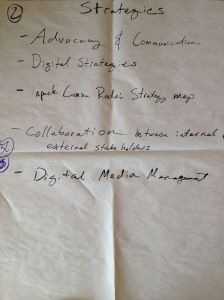 2
Strategies
- Advocacy & Communication
- Digital Strategies
- Strategy map
- Collaboration between internal &
external stakeholders
- Digital Media Management